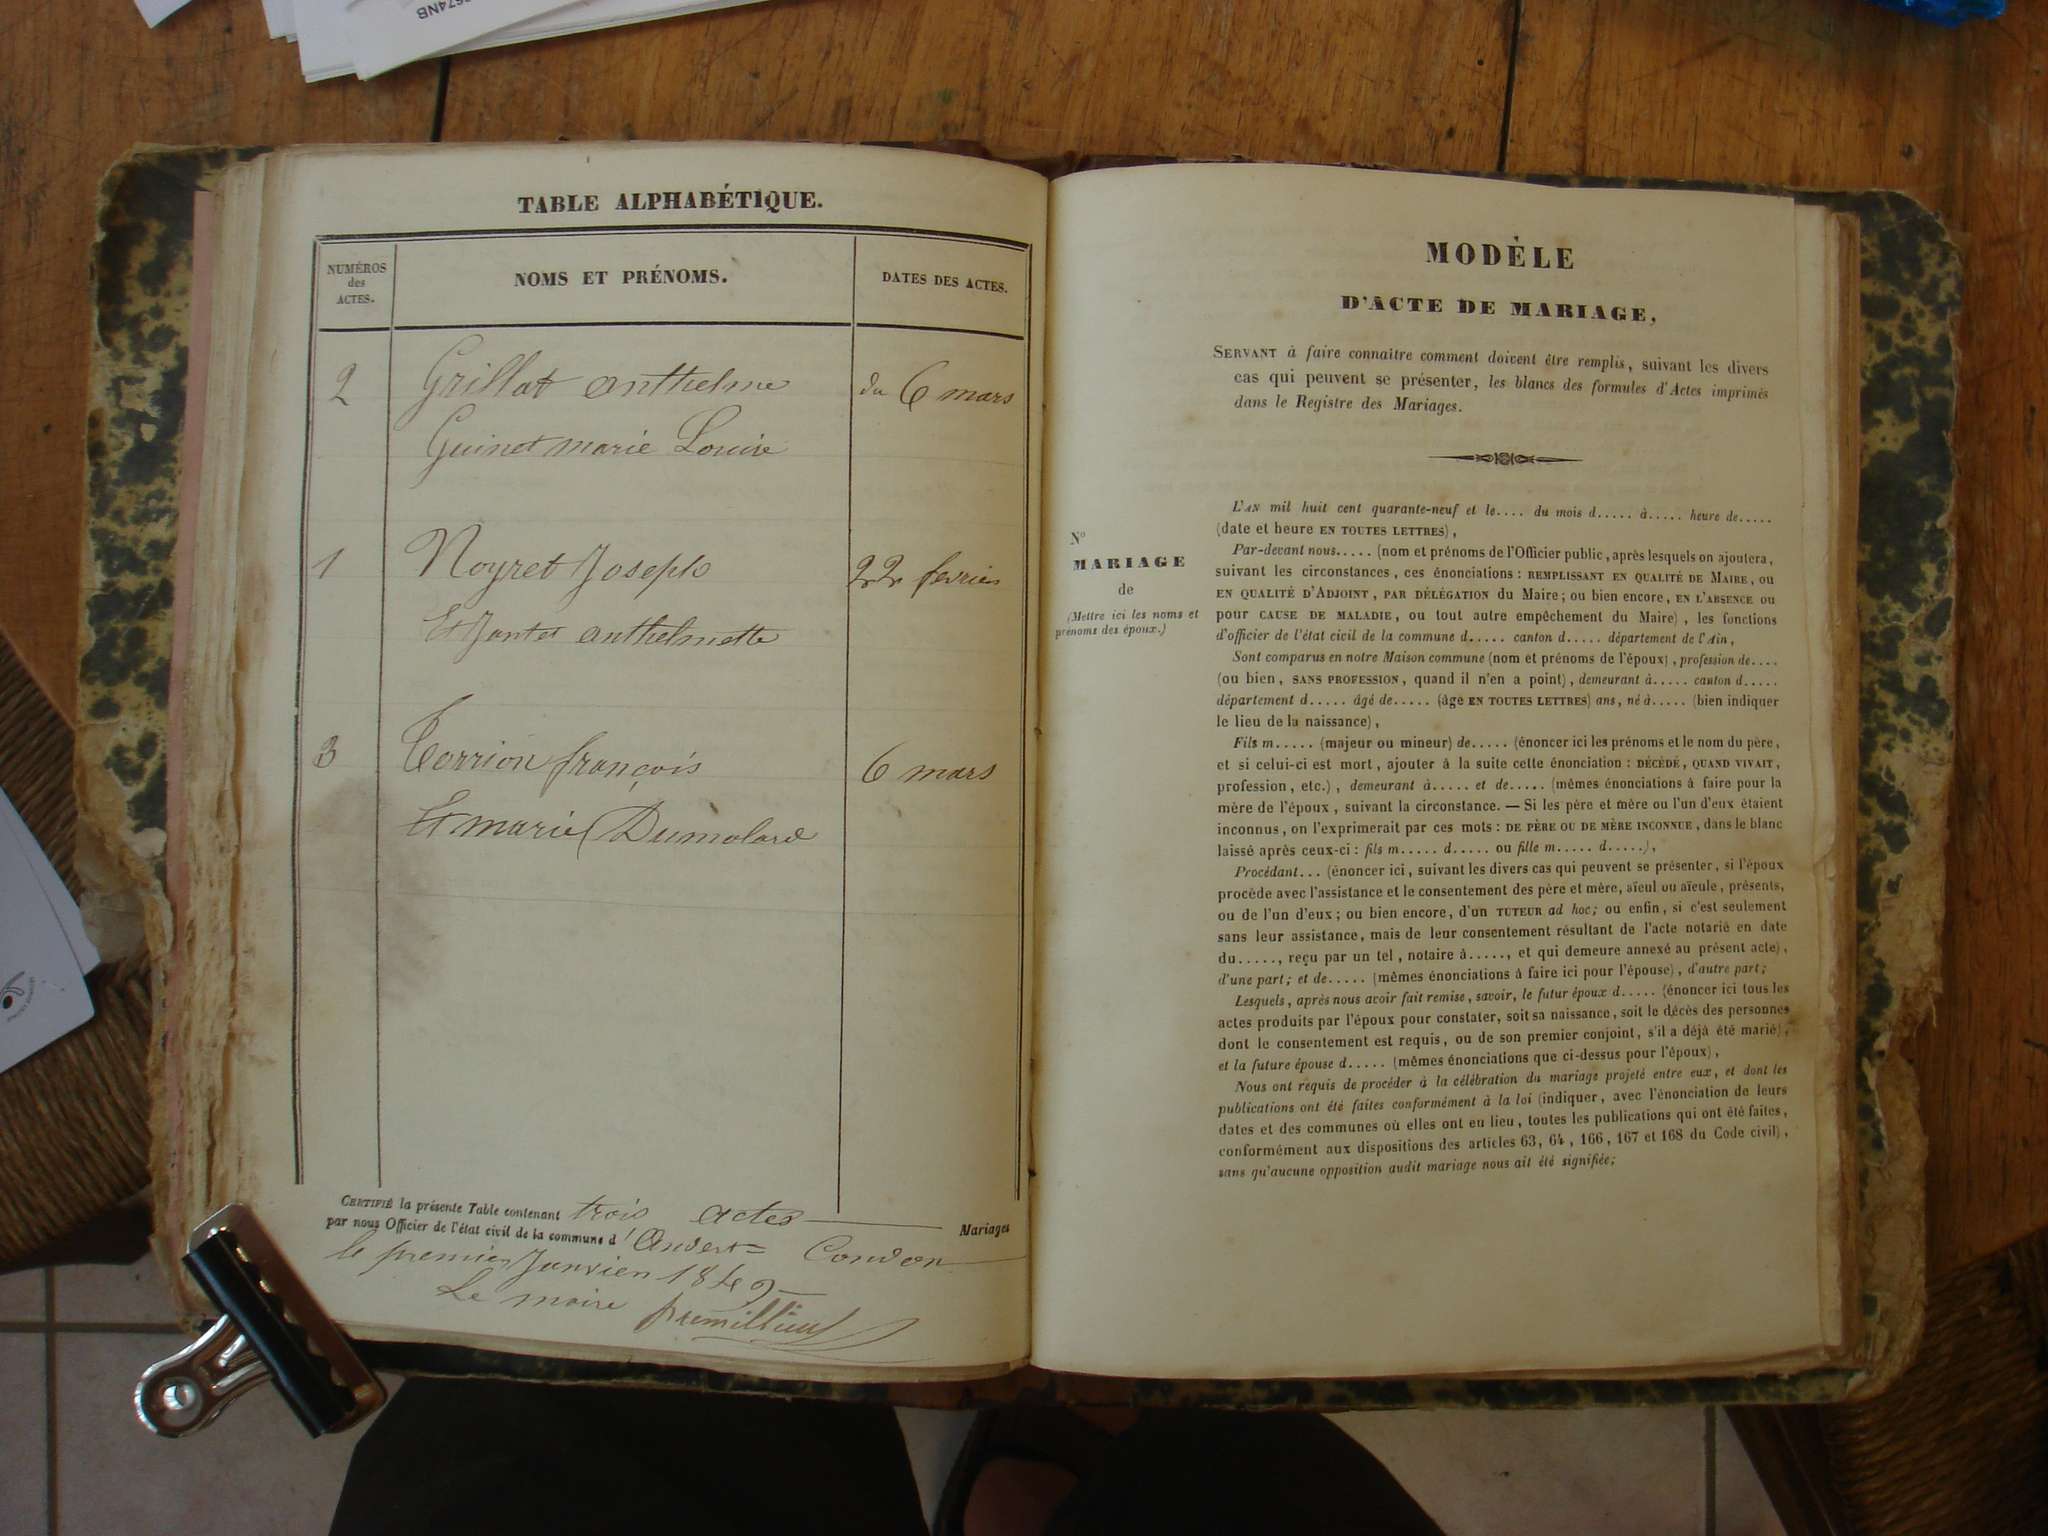 TABLE ALPHABÉTIQUE.
NUMÉROS
des
ACTES.
NOMS ET PRÉNOMS.
DATES DES ACTES.
2 Grillat anthelme du 6 mars
Guinet marie Louise
1 Noyret Joseph 22 fevrier
Et Jantet anthelmette
3 Torrion françois 6 mars
Et marie Dumolard
CERTIFIÉ la présente Table contenant trois actes Mariages
par nous Officier de l'état civil de la commune d'Andert= Condon
le premier Janvier 1849
Le maire
MODÈLE
D'ACTE DE MARIAGE,
SERVANT à faire connaître comment doivent être remplis, suivant les divers
cas qui peuvent se présenter, les blancs des formules d'Actes imprimés
dans le Registre des Mariages.
N°
MARIAGE
de
(Mettre ici les noms et
prénoms des époux.)
L'AN mil huit cent quarante-neuf et le.... du mois d..... à..... heure de.....
(date et heure EN TOUTES LETTRES),
Par-devant nous..... (nom et prénoms de l'Officier public, après lesquels on ajoutera,
suivant les circonstances, ces énonciations : REMPLISSANT EN QUALITÉ DE MAIRE, ou
EN QUALITÉ D'ADJOINT, PAR DÉLÉGATION du Maire; ou bien encore, EN L'ABSENCE ou
pour CAUSE DE MALADIE, ou tout autre empêchement du Maire), les fonctions
d'officier de l'état civil de la commune d..... canton d..... département de l'Ain,
Sont comparus en notre Maison commune (nom et prénoms de l'époux), profession de....
(ou bien, SANS PROFESSION, quand il n'en a point), demeurant à..... canton d.....
département d..... âgé de..... (âge EN TOUTES LETTRES) ans, né à..... (bien indiquer
le lieu de la naissance),
Fils m..... (majeur ou mineur) de..... (énoncer ici les prénoms et le nom du père,
et si celui-ci est mort, ajouter à la suite cette énonciation : DÉCÉDÉ, QUAND VIVAIT,
profession, etc.), demeurant à..... et de..... (mêmes énonciations à faire pour la
mère de l'époux, suivant la circonstance. — Si les père et mère ou l'un d'eux étaient
inconnus, on l'exprimerait par ces mots : DE PÈRE OU DE MÈRE INCONNUE, dans le blanc
laissé après ceux-ci : fils m..... d..... ou fille m..... d.....),
Procédant... (énoncer ici, suivant les divers cas qui peuvent se présenter, si l'époux
procède avec l'assistance et le consentement des père et mère, aïeul ou aïeule, présents,
ou de l'un d'eux; ou bien encore, d'un TUTEUR ad hoc; ou enfin, si c'est seulement
sans leur assistance, mais de leur consentement résultant de l'acte notarié en date
du....., reçu par un tel, notaire à....., et qui demeure annexé au présent acte),
d'une part; et de..... (mêmes énonciations à faire ici pour l'épouse), d'autre part;
Lesquels, après nous avoir fait remise, savoir, le futur époux d..... (énoncer ici tous les
actes produits par l'époux pour constater, soit sa naissance, soit le décès des personnes
dont le consentement est requis, ou de son premier conjoint, s'il a déjà été marié),
et la future épouse d..... (mêmes énonciations que ci-dessus pour l'époux),
Nous ont requis de procéder à la célébration du mariage projeté entre eux, et dont les
publications ont été faites conformément à la loi (indiquer, avec l'énonciation de leurs
dates et des communes où elles ont eu lieu, toutes les publications qui ont été faites,
conformément aux dispositions des articles 63, 64, 166, 167 et 168 du Code civil),
sans qu'aucune opposition audit mariage nous ait été signifiée;